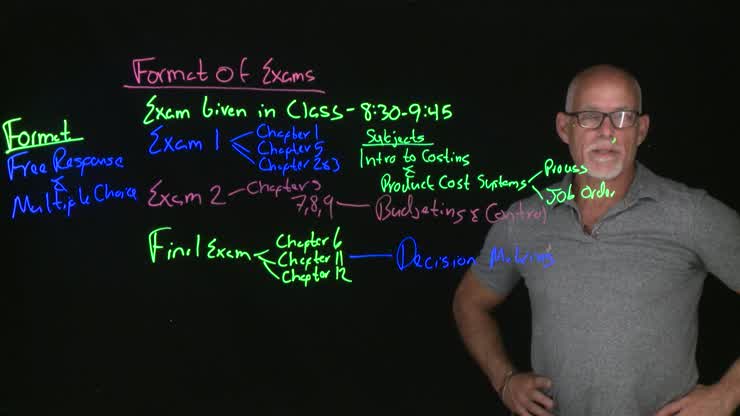 Format Of Exams
Exam Given in Class - 8:30-9:45
Format
Free Response
&
Multiple Choice
Exam 1
Chapter 1
Chapter 5
Chapter 2&3
Subjects
Intro to Costing
&
Product Cost Systems
Process
Job Order
Exam 2
Chapters
7,8,9
Budgeting & Control
Final Exam
Chapter 6
Chapter 11
Chapter 12
Decision Making